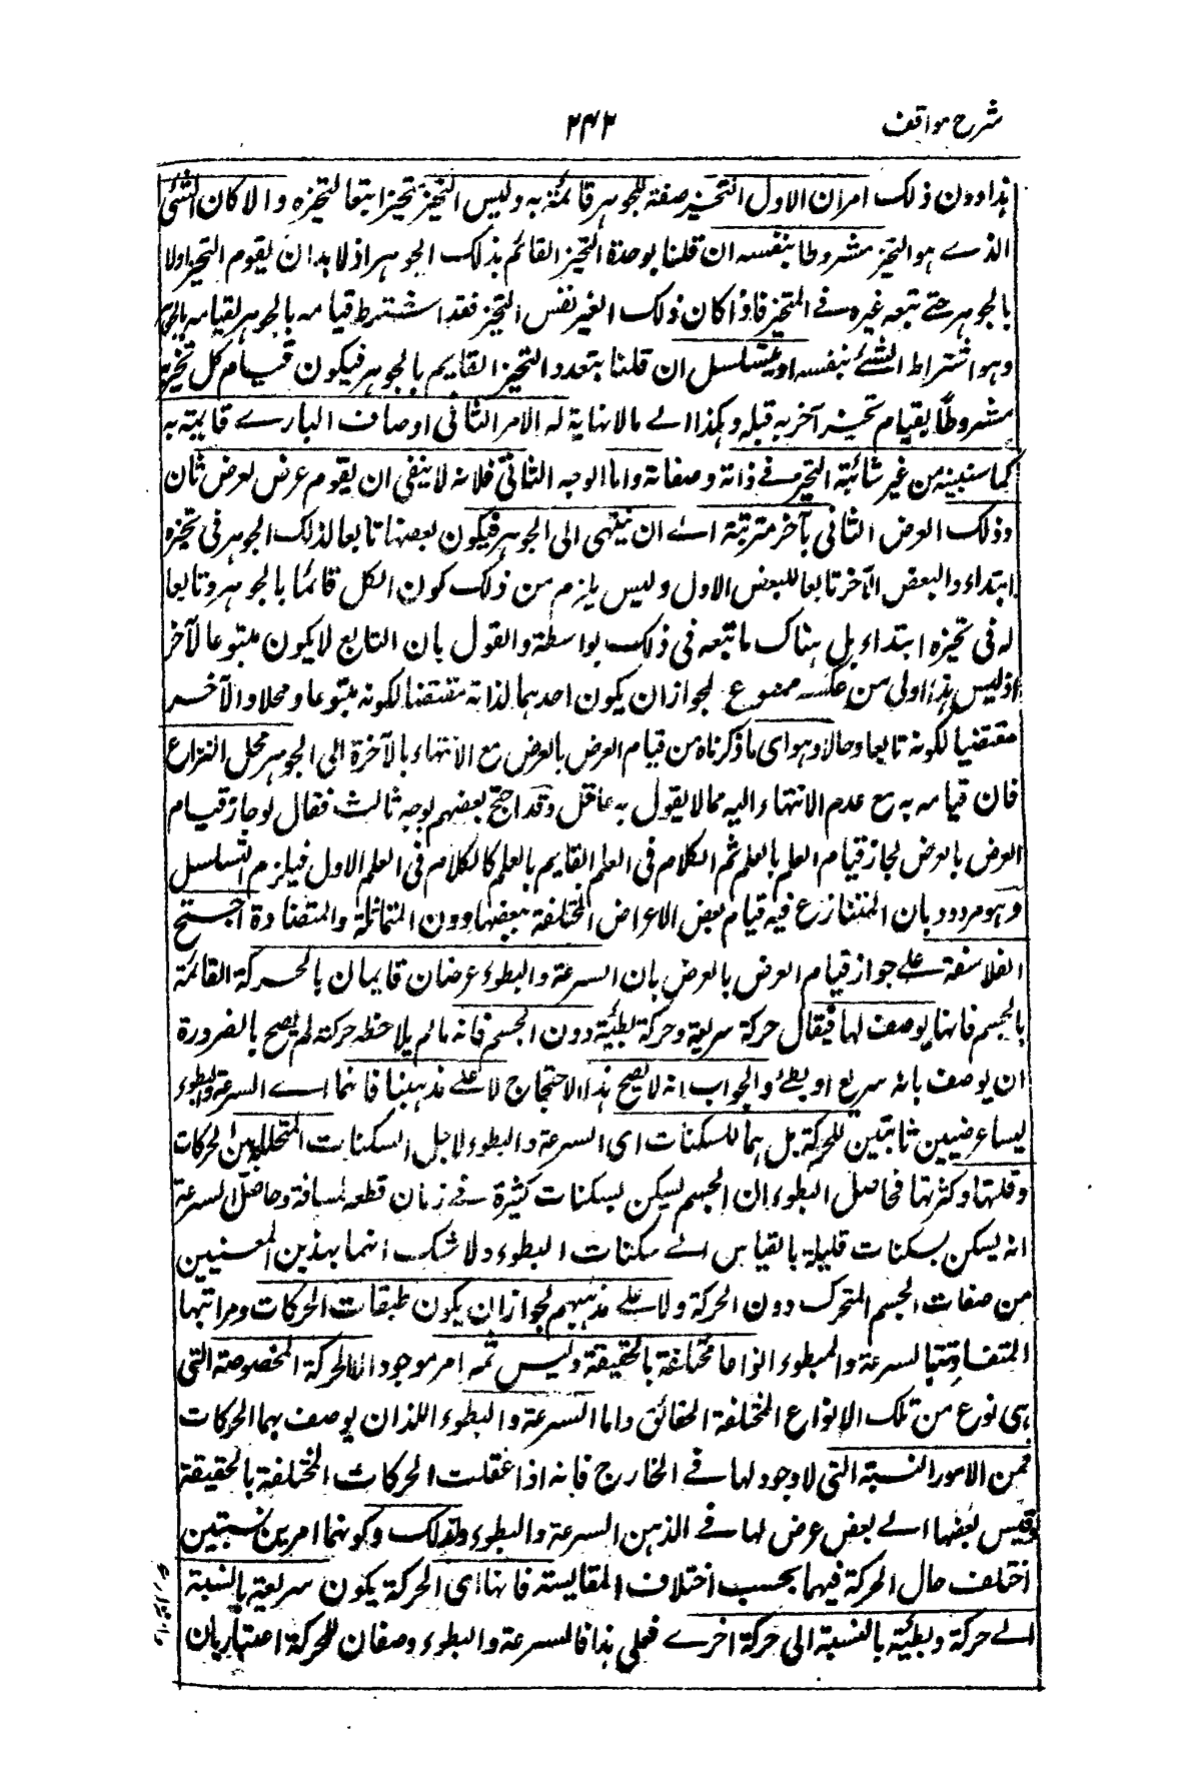 شرح مواقف
۲۴۲
هذا دون ذلك امران الاول التحيز صفة للجوهر قائمة به وليس التحيز متحيزا تبعا لتحيزه والا كان الشئ
الذے هو التحيز مشروطا بنفسه ان قلنا بوحدة التحيز القائم بذلك الجوهر اذ لا بد ان يقوم التحيز اولا
بالجوهر حتى يتبعه غيره فے المتحيز فاذا كان ذلك الغير نفس التحيز فقد اشترط قيامه بالجوهر لقيامه بالجوهر
وهو اشتراط الشئ بنفسه او يتسلسل ان قلنا بتعدد التحيز القايم بالجوهر فيكون قيام كل تحيز
مشروطا بقيام تحيز آخر به قبله وهكذا الے مالا نهاية له الامر الثانى اوصاف البارے قايمة به
كما سنبينه من غير شائبة التحيز فے ذاته وصفاته واما الوجه الثانى فلانه لا ينفى ان يقوم عرض بعرض ثان
وذلك العرض الثانى بآخر مترتبة الے ان ينتهى الى الجوهر فيكون بعضها تابعا لذلك الجوهر فى تحيزه
ابتداء والبعض الآخر تابعا للبعض الاول وليس يلزم من ذلك كون الكل قائما بالجوهر وتابعا
له فى تحيزه ابتداء بل هناك ما تبعه فى ذلك بواسطة والقول بان التابع لا يكون متبوعا لآخر
اذ ليس هذا اولى من عكسه ممنوع لجواز ان يكون احدهما لذاته مقتضيا لكونه متبوعا ومحلا والآخر
مقتضيا لكونه تابعا وحالا وهو اى ما ذكرناه من قيام العرض بالعرض مع الانتهاء بالآخرة الى الجوهر محل النزاع
فان قيامه به مع عدم الانتهاء اليه مما لا يقول به عاقل وقد احتج بعضهم بوجه ثالث فقال لو جاز قيام
العرض بالعرض لجاز قيام العلم بالعلم ثم الكلام فى العلم القايم بالعلم كالكلام فى العلم الاول فيلزم التسلسل
وهو مردود بان المتنازع فيه قيام بعض الاعراض المختلفة ببعضها دون المتماثلة والمتضادة احتج
الفلاسفة علے جواز قيام العرض بالعرض بان السرعة والبطوء عرضان قايمان بالحركة القائمة
بالجسم فانها يوصف لها فيقال حركة سريعة وحركة بطيئة دون الجسم فانه ما لم يلاحظ حركته لم يصح بالضرورة
ان يوصف بانه سريع او بطئ والجواب انه لا يصح هذا الاحتجاج لا علے مذهبنا فانهما اے السرعة والبطوء
ليسا عرضيين ثابتين للحركة بل هما للسكنات اى السرعة والبطوء لاجل السكنات المتخللة بين الحركات
وقلتها وكثرتها فحاصل البطوء ان الجسم يسكن بسكنات كثيرة فے زمان قطعه لمسافة وحاصل السرعة
انه يسكن بسكنات قليلة بالقياس الے سكنات البطوء ولا شك انهما بهذين المعنيين
من صفات الجسم المتحرك دون الحركة ولا علے مذهبهم لجواز ان يكون طبقات الحركات ومراتبها
المتفاوتة بالسرعة والبطوء انواعا مختلفة بالحقيقة وليس ثمه امر موجود الا الحركة المخصوصة التى
هى نوع من تلك الانواع المختلفة الحقائق واما السرعة والبطوء اللذان يوصف بهما الحركات
فمن الامور النسبية التى لا وجود لها فے الخارج فانه اذا عقلت الحركات المختلفة بالحقيقة
وقيس بعضها الے بعض عرض لها فے الذهن السرعة والبطوء ولذلك وكونهما امرين نسبيين
اختلف حال الحركة فيهما بحسب اختلاف المقايسة فانها اى الحركة يكون سريعة بالنسبة
الے حركة وبطيئة بالنسبة الى حركة اخرے فعلى هذا فالسرعة والبطوء وصفان للحركة اعتباريان